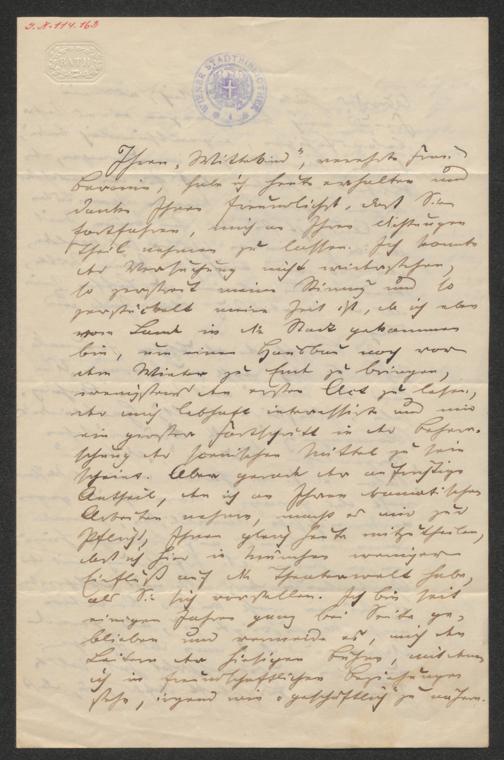 I.N. 114.163
BATH
WIENER STADTBIBLIOTHEK
Ihren „Wittekind", verehrte Frau
Baronin, habe ich heute erhalten und
danke Ihnen freundlichst, daß Sie
fortfahren, mich an Ihren Dichtungen
Theil nehmen zu lassen. Ich konnte
der Versuchung nicht widerstehen,
so zerstreut meine Stimmung und so
zerstückelt meine Zeit ist, da ich eben
vom Land in die Stadt gekommen
bin, um einen Hausbau noch vor
dem Winter zu Ende zu bringen,
wenigstens den ersten Act zu lesen,
der mich lebhaft interessirte und mir
ein großer Fortschritt in der Beherr-
schung der scenischen Mittel zu sein
scheint. Aber gerade der aufrichtige
Antheil, den ich an Ihren dramatischen
Arbeiten nehme, macht es mir zur
Pflicht, Ihnen gleich heute mitzutheilen,
daß ich hier in München weniger
Einfluß auf die Theaterwelt habe,
als Sie sich vorstellen. Ich bin seit
einigen Jahren ganz bei Seite ge-
blieben und vermeide es, mich den
Leitern der hiesigen Bühne, mit denen
ich in freundschaftlichen Beziehungen
stehe, irgend wie „geschäftlich" zu nähern.